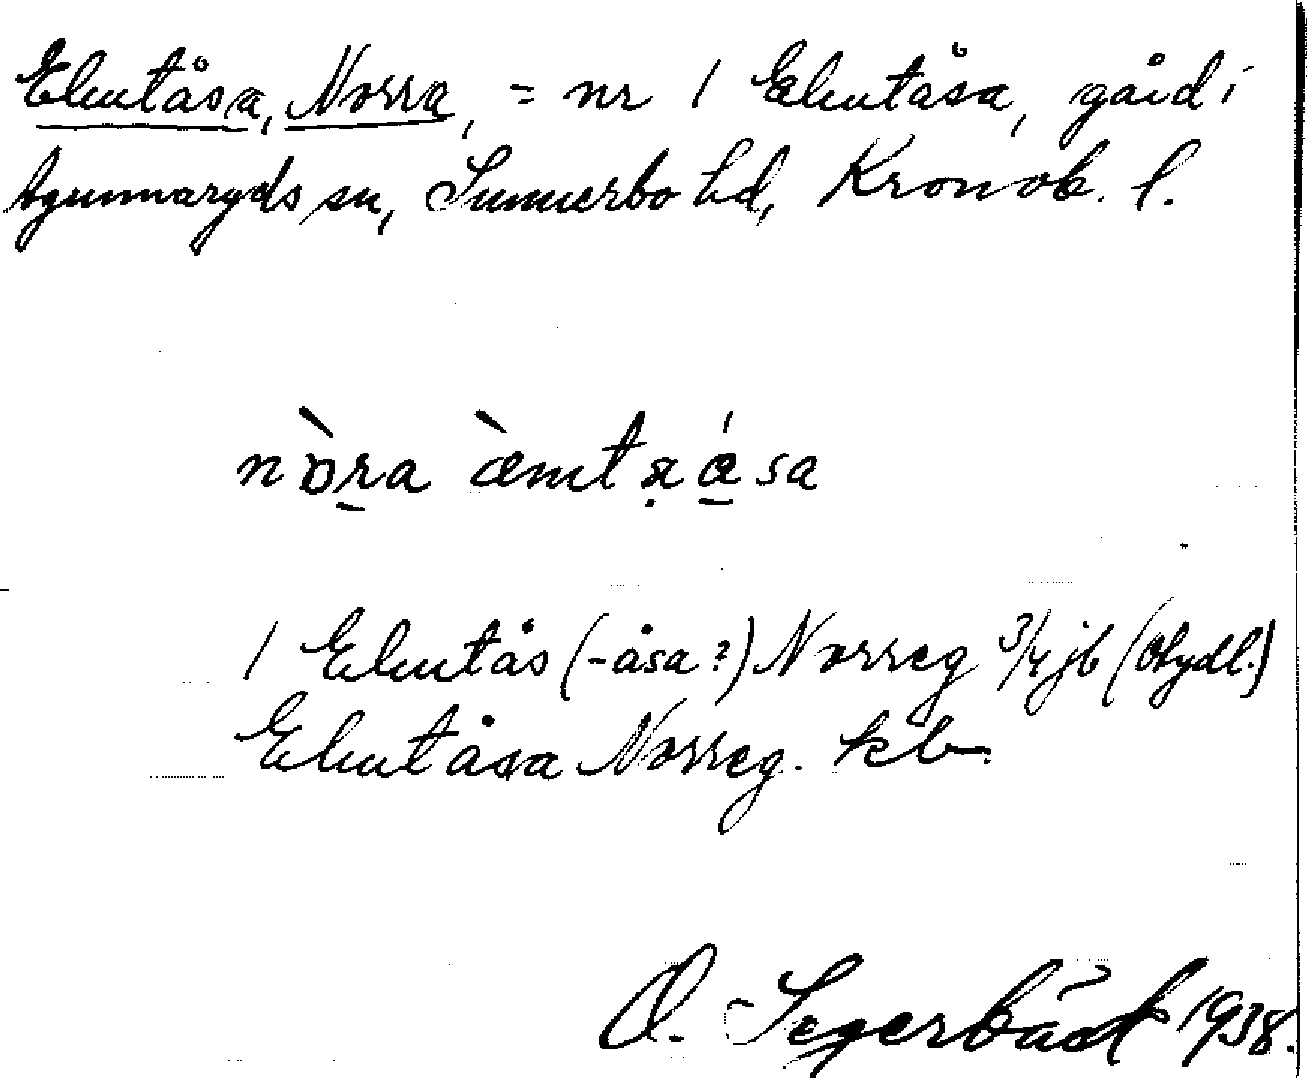 Elmtåsa, Norra, = nr 1 Elmtåsa, gård i
Agunnaryds sn, Sunnerbo hd, Kronob. l.
nòra æ̀mtaåsa
1 Elmtås (-åsa?) Norreg 3/4 jb
Elmtåsa Norreg. kb.
O. Segerbäck 1938.